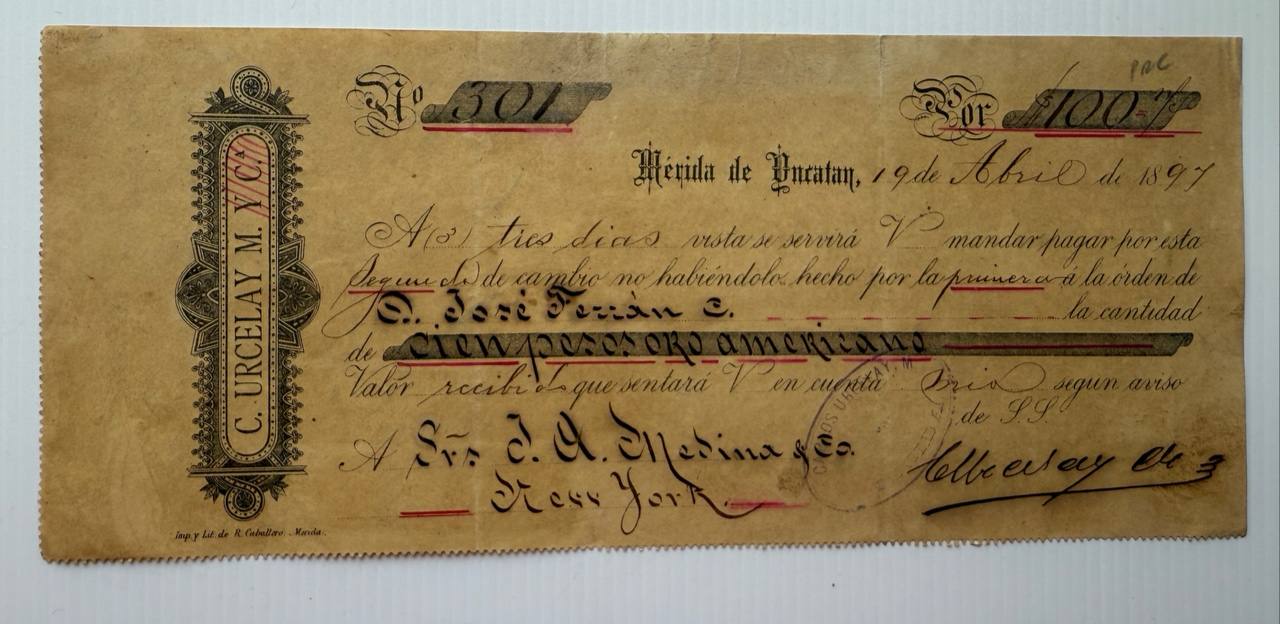 C. URCELAY M. Y C.ª
Nº 301
Por $100-
Mérida de Yucatan, 19 de Abril de 1897
A (3) tres dias vista se servirá V mandar pagar por esta
Segunda de cambio no habiéndolo hecho por la primera á la órden de
D. José Ferrán C. la cantidad
de cien pesos oro americano
Valor recibido que sentará V en cuenta segun aviso
de S.S.
A Srs J. A. Medina & Co.
New York.
CARLOS URCELAY M
Imp. y Lit. de R. Caballero. Merida.